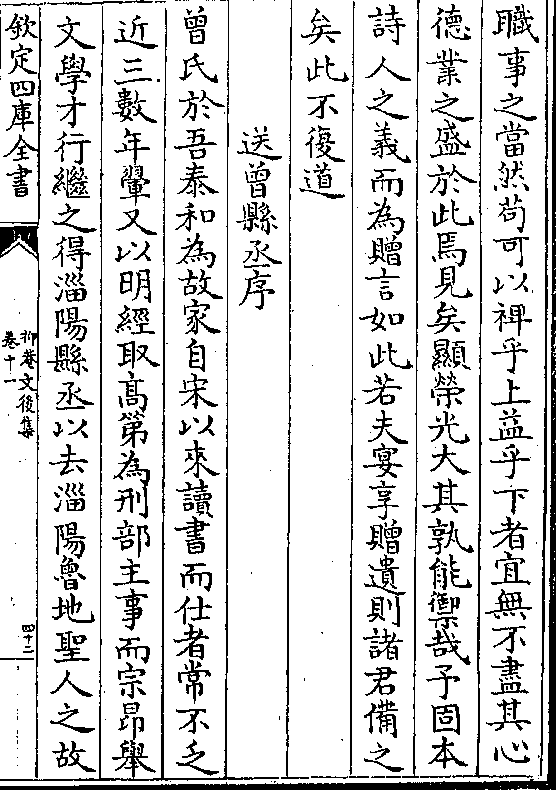 職事之當然茍可以裨乎上益乎下者宜無不盡其心
德業之盛於此焉見矣顯榮光大其孰能禦哉予固本
詩人之義而為贈言如此若夫宴享贈遺則諸君備之
矣此不復道
送曾縣丞序
曾氏於吾泰和為故家自宋以來讀書而仕者常不乏
近三數年鞏又以明經取高第為刑部主事而宗昂舉
文學才行繼之得淄陽縣丞以去淄陽魯地聖人之故
欽定四庫全書
抑菴文後集
卷十一
四十二